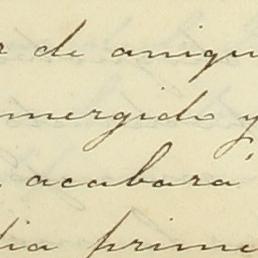 r de aniqu
mergido y
acabara"
dia prime